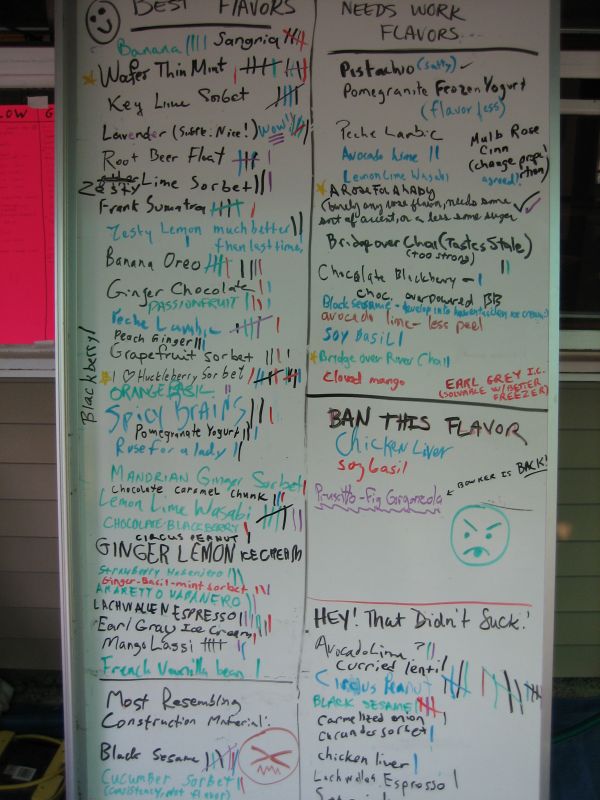 BEST FLAVORS
Banana
Sangria
Wafer Thin Mint
Key Lime Sorbet
Lavender (Subtle. Nice!) Wow!
Root Beer Float
Zesty Lime Sorbet
Frank Sumatra
Zesty Lemon much better
then last time,
Banana Oreo
Ginger Chocolate
PASSIONFRUIT
Peche Lambic
Peach Ginger
Grapefruit Sorbet
I ♡ Huckleberry Sorbet
Blackberry!
ORANGE BASIL
SPICY BRAINS
Pomegranate Yogurt
Rose for a lady
MANDRIAN Ginger Sorbet
chocolate caramel chunk
Lemon Lime Wasabi
CHOCOLATE-BLACKBERRY
CIRCUS PEANUT
GINGER LEMON ICE CREAM
Strawberry Habenjero
Ginger-Basil-mint sorbet
AMARETTO HABANERO
LACHWALLEN ESPRESSO
Earl Gray Ice Cream
Mango Lassi
French Vanilla bean
Most Resembling
Construction Material:
Black Sesame
Cucumber Sorbet
(consistency, not flavor)
NEEDS WORK
FLAVORS...
Pistachio (salty)
Pomegranite Frozen Yogurt
(flavor less)
Peche Lambic
Avocado Lime
Lemon Lime Wasabi
Mulb Rose
Cinn
(change propo
rtion)
agreed!
A ROSE FOR A LADY
(barely any rose flavor, needs some
sort of accent, or a less some sugar
Bridge over Chai (Tastes Stale)
(too strong)
Chocolate Blackberry -
choc. overpowered BB
Black sesame - develop into
avocado lime - less peel
SOY BASIL
Bridge over River Chai
Cloved mango
EARL GREY I.C.
(SOLVABLE W/ BETTER
FREEZER)
BAN THIS FLAVOR
Chicken Liver
soy basil
Prusitto-Fig Gorgonzola
BOWKER IS BACK!
HEY! That Didn't Suck!
Avocado Lime ?
curried lentil
Circus Peanut
BLACK SESAME
Carmelized onion
Cucumber sorbet
chicken liver
Lachwallas Espresso